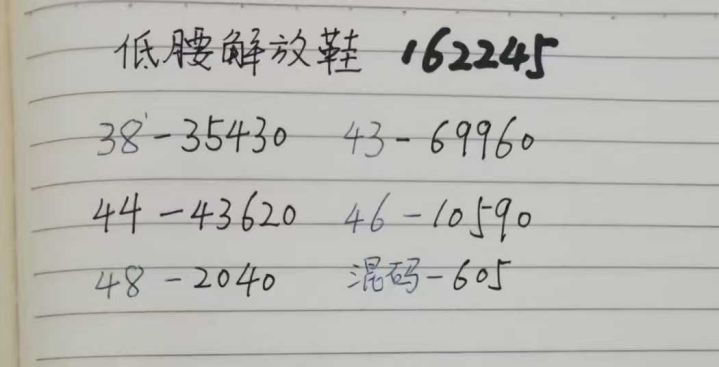 低腰解放鞋 162245
38-35430 43-69960
44-43620 46-10590
48-2040 混码-605